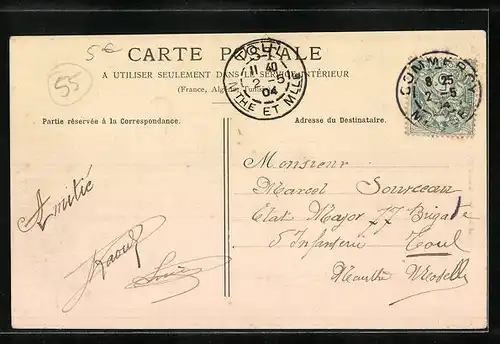 5€
CARTE POSTALE
A UTILISER SEULEMENT DANS LE SERVICE INTÉRIEUR
(France, Algérie, Tunisie)
55
TOUL
11 40
2-5
04
MTHE ET MLLE
COMMERCY
8 25
2-5
Partie réservée à la Correspondance.
Adresse du Destinataire.
Amitié
Raoul
Monsieur
Marcel
Etat Major 77 Brigade
d'Infanterie Toul
Meurthe Moselle